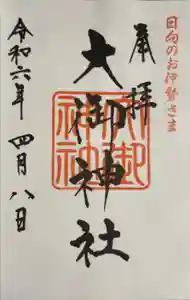 日向のお伊勢さま
奉拝
大御神社
令和六年四月八日